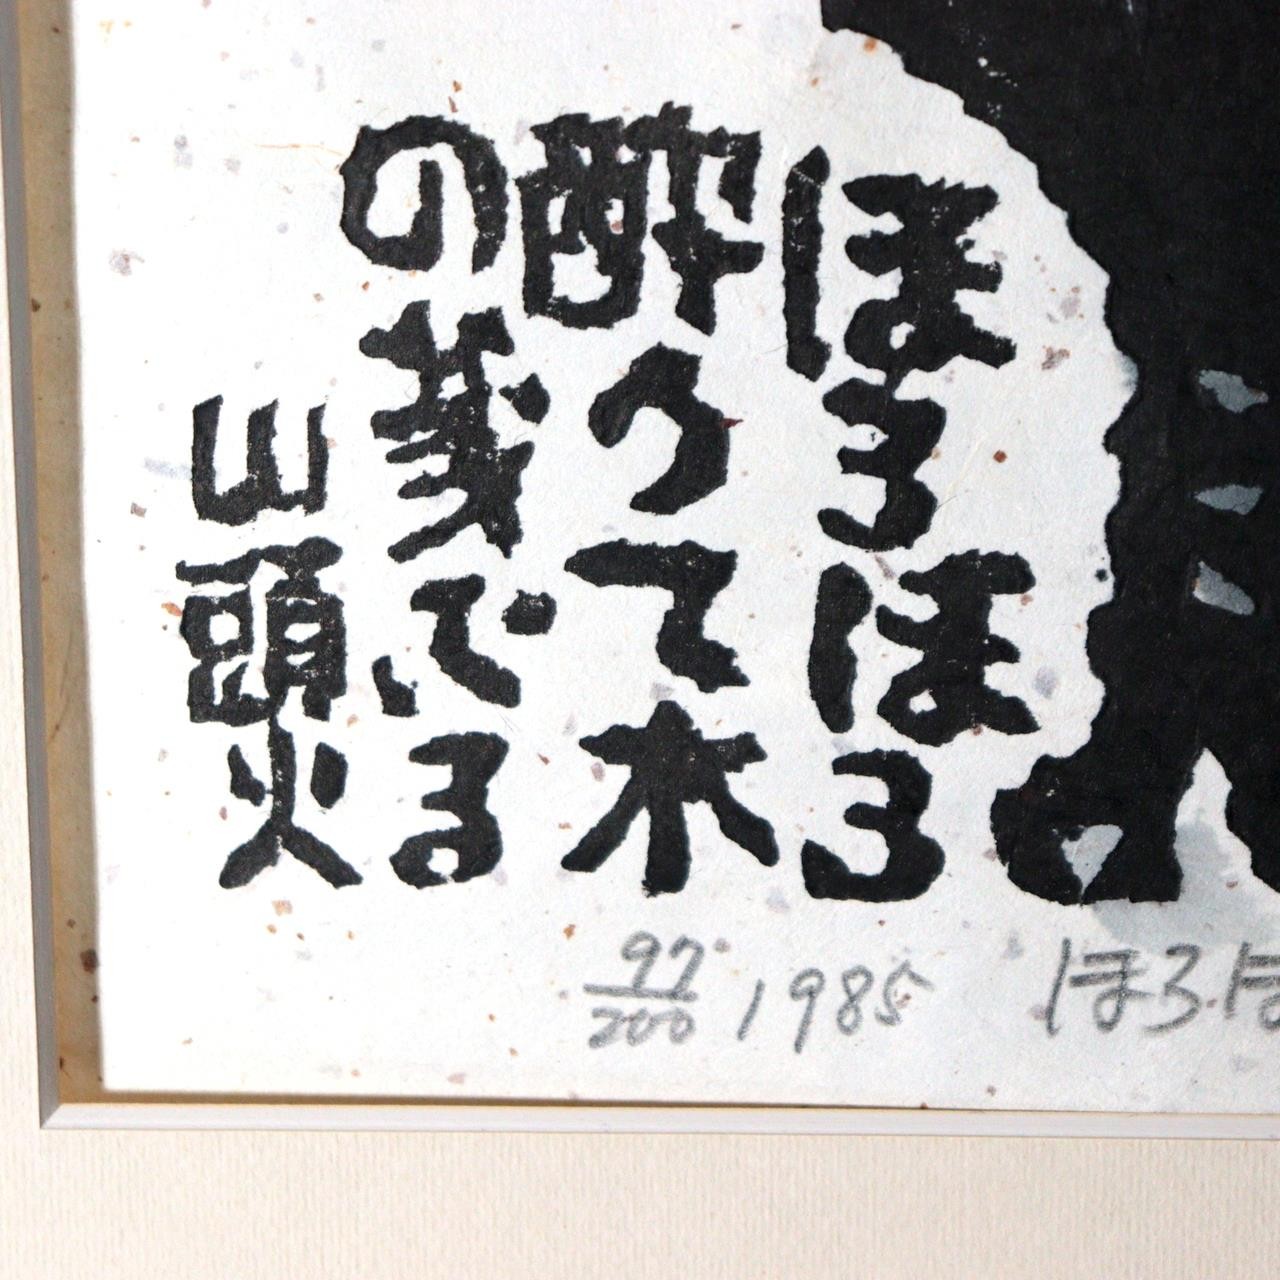 ほろほろ
酔うて木
の葉ふる
山頭火
97/200 1985 ほろほ